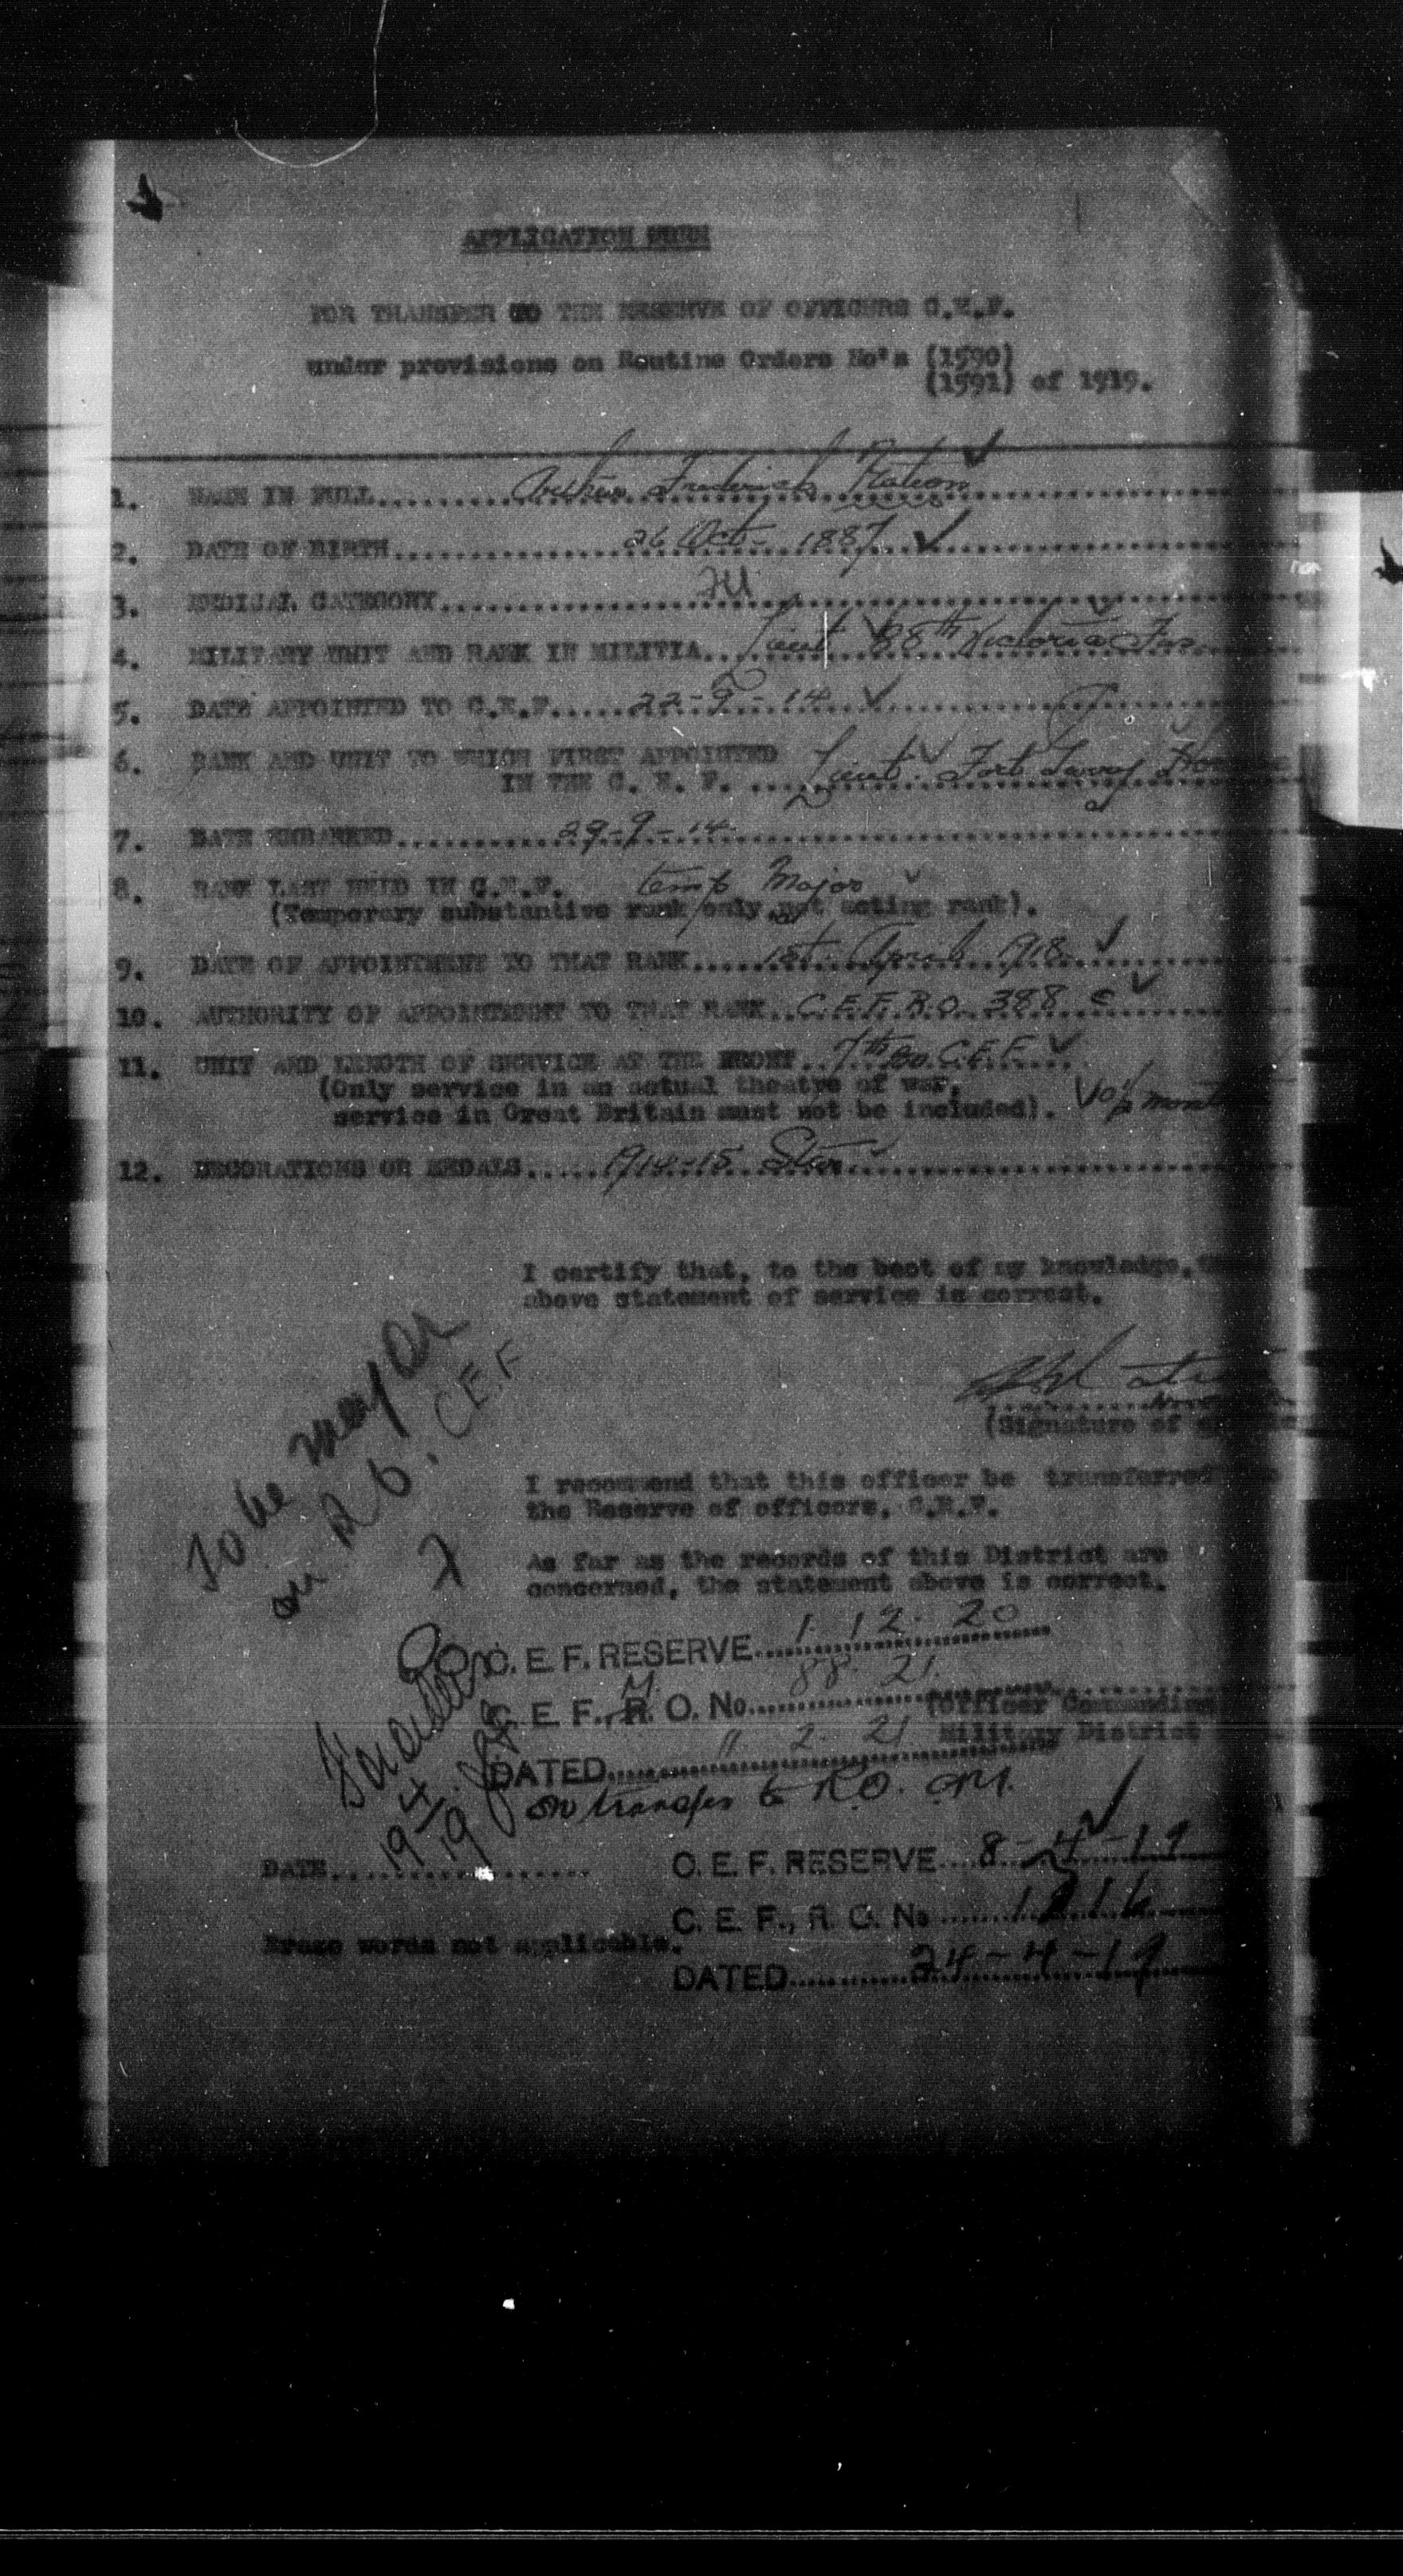 APPLICATION FORM
FOR TRANSFER TO THE RESERVE OF OFFICERS C.E.F.
under provisions on Routine Orders No's (1590)
(1591) of 1919.
1. NAME IN FULL.......Arthur Frederick Nation
2. DATE OF BIRTH.......26 Oct - 1887
3. MEDICAL CATEGORY.......
4. MILITARY UNIT AND RANK IN MILITIA..Lieut 88th Victoria Fus.
5. DATE APPOINTED TO C.E.F.....22-9-14
6. RANK AND UNIT TO WHICH FIRST APPOINTED
IN THE C. E. F. ....Lieut. Fort Garry Horse
7. DATE EMBARKED.......29-9-14
8. RANK LAST HELD IN C.E.F. temp Major
(Temporary substantive rank only not acting rank).
9. DATE OF APPOINTMENT TO THAT RANK....1st April 1918
10. AUTHORITY OF APPOINTMENT TO THAT RANK..C.E.F.R.O. 388
11. UNIT AND LENGTH OF SERVICE AT THE FRONT..7th Bn. C.E.F.
(Only service in an actual theatre of war,
service in Great Britain must not be included).
12. DECORATIONS OR MEDALS.....1914-15 Star
I certify that, to the best of my knowledge,
above statement of service is correct.
(Signature of
I recommend that this officer be transferred
the Reserve of officers, C.E.F.
To be major
on R.O. C.E.F
As far as the records of this District are
concerned, the statement above is correct.
C. E. F. RESERVE.....1. 12. 20
C. E. F., R. O. No.....88. 21.
M.
(Officer Commanding
Military District
DATED.....11. 2. 21
on transfer to R.O. C.M.
19/4/19
DATE..................
C. E. F. RESERVE....8-4-19
C. E. F., R. O. No
Erase words not applicable.
DATED............24-4-19